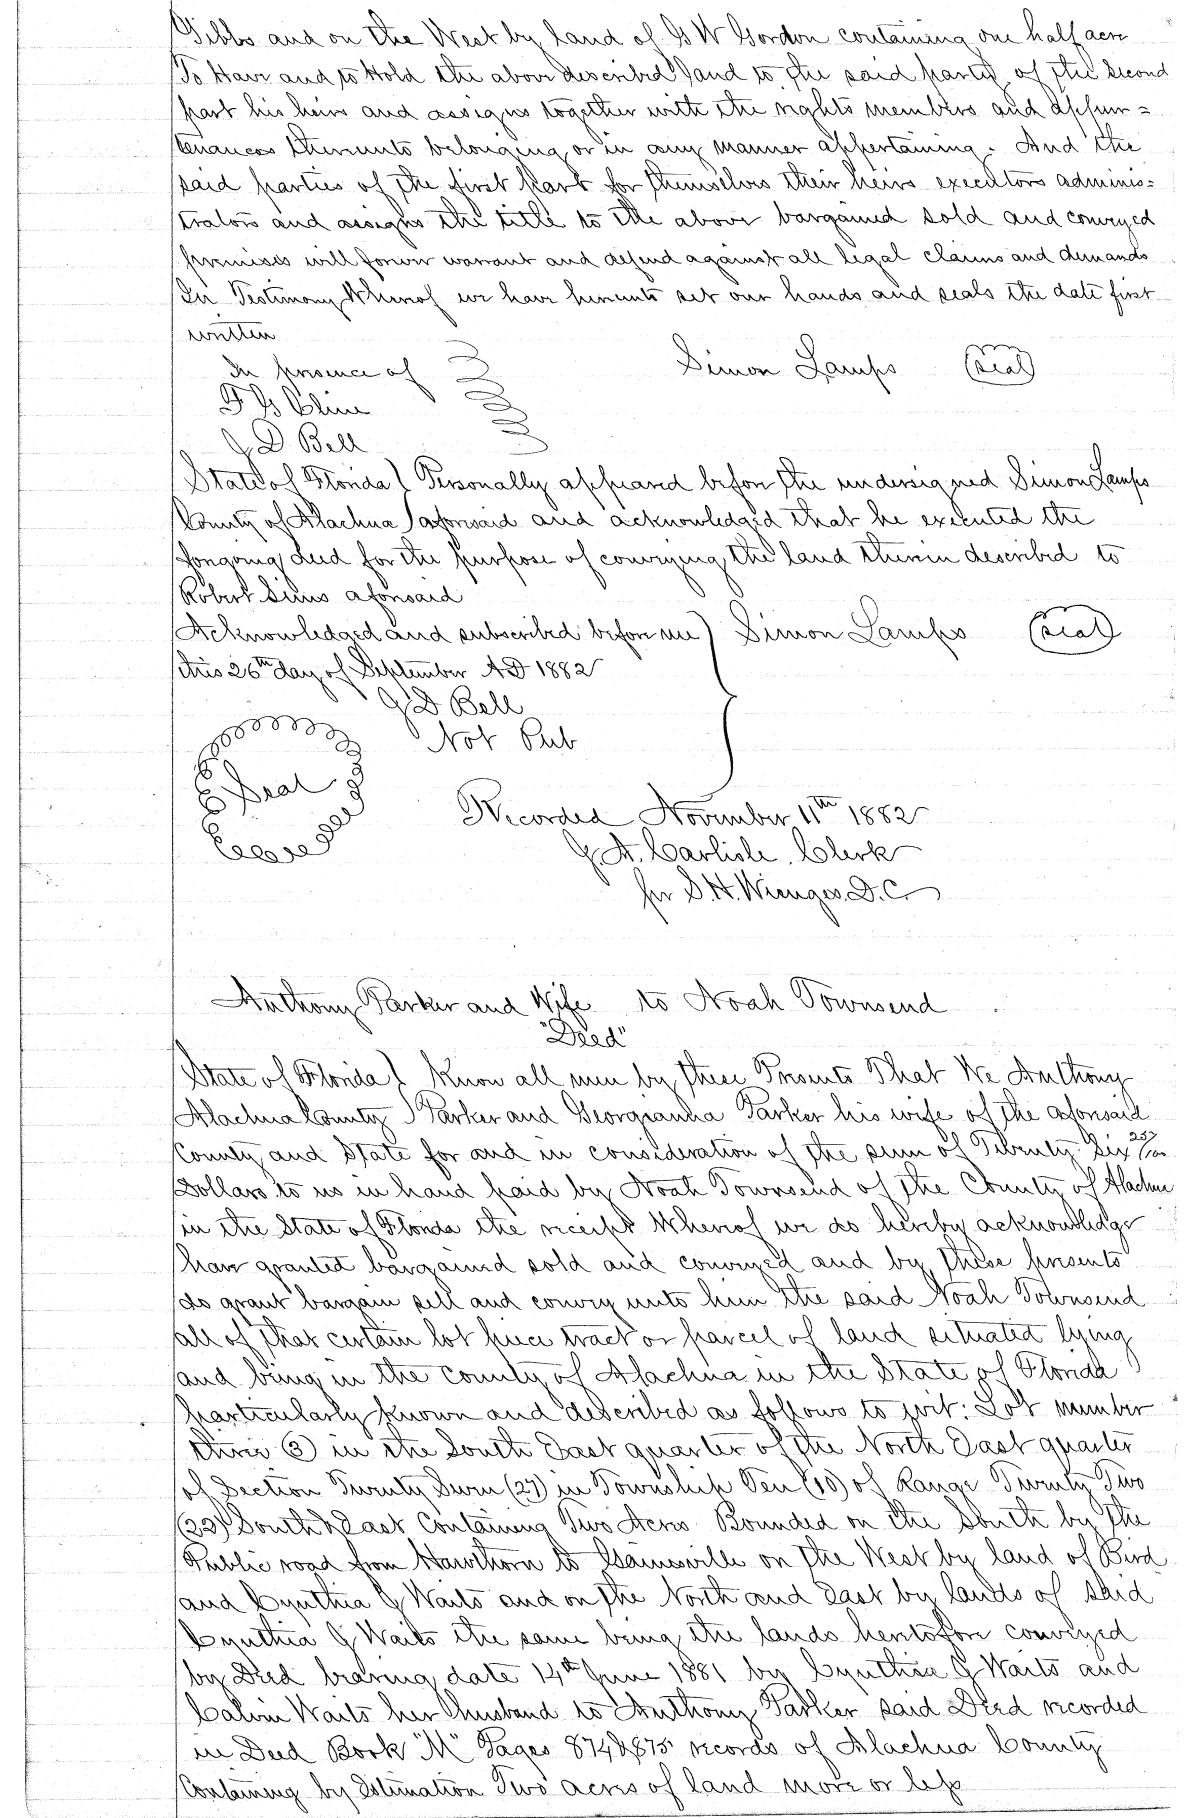 Gibbs and on the West by land of G W Gordon containing one half acre
To Have and to Hold the above described land to the said party of the second
part his heirs and assigns together with the rights members and appur=
tenances thereunto belonging or in any manner appertaining. And the
said parties of the first part for themselves their heirs executors adminis=
trators and assigns the title to the above bargained sold and conveyed
premises will forever warrant and defend against all legal claims and demands
In Testimony Whereof we have hereunto set our hands and seals the date first
written
In presence of
Simon Lamps (seal)
F G Cline
J D Bell
State of Florida } Personally appeared before the undersigned Simon Lamps
County of Alachua } aforesaid and acknowledged that he executed the
foregoing deed for the purpose of conveying the land therein described to
Robert Sims aforesaid
Acknowledged and subscribed before me } Simon Lamps (seal)
this 26th day of September AD 1882
J D Bell
Not Pub
Seal
Recorded November 11th 1882
J. A. Carlisle. Clerk
per S. H. Wienges. D. C.
Anthony Parker and Wife to Noah Townsend
"Deed"
State of Florida } Know all men by these Presents That We Anthony
Alachua County } Parker and Georgianna Parker his wife of the aforesaid
County and State for and in consideration of the sum of Twenty Six 25/100
Dollars to us in hand paid by Noah Townsend of the County of Alachua
in the State of Florida the receipt Whereof we do hereby acknowledge
have granted bargained sold and conveyed and by these presents
do grant bargain sell and convey unto him the said Noah Townsend
all of that certain lot piece tract or parcel of land situated lying
and being in the County of Alachua in the State of Florida
particularly known and described as follows to wit: Lot number
three (3) in the South East quarter of the North East quarter
of Section Twenty Seven (27) in Township Ten (10) of Range Twenty Two
(22) South & East Containing Two Acres Bounded on the South by the
Public road from Hawthorn to Gainesville on the West by land of Bird
and Cynthia J Waits and on the North and East by lands of said
Cynthia J Waits the same being the lands heretofore conveyed
by Deed bearing date 14th June 1881 by Cynthia J Waits and
Calvin Waits her husband to Anthony Parker said Deed recorded
in Deed Book "M" Pages 874 & 875 records of Alachua County
Containing by Estimation Two acres of land more or less